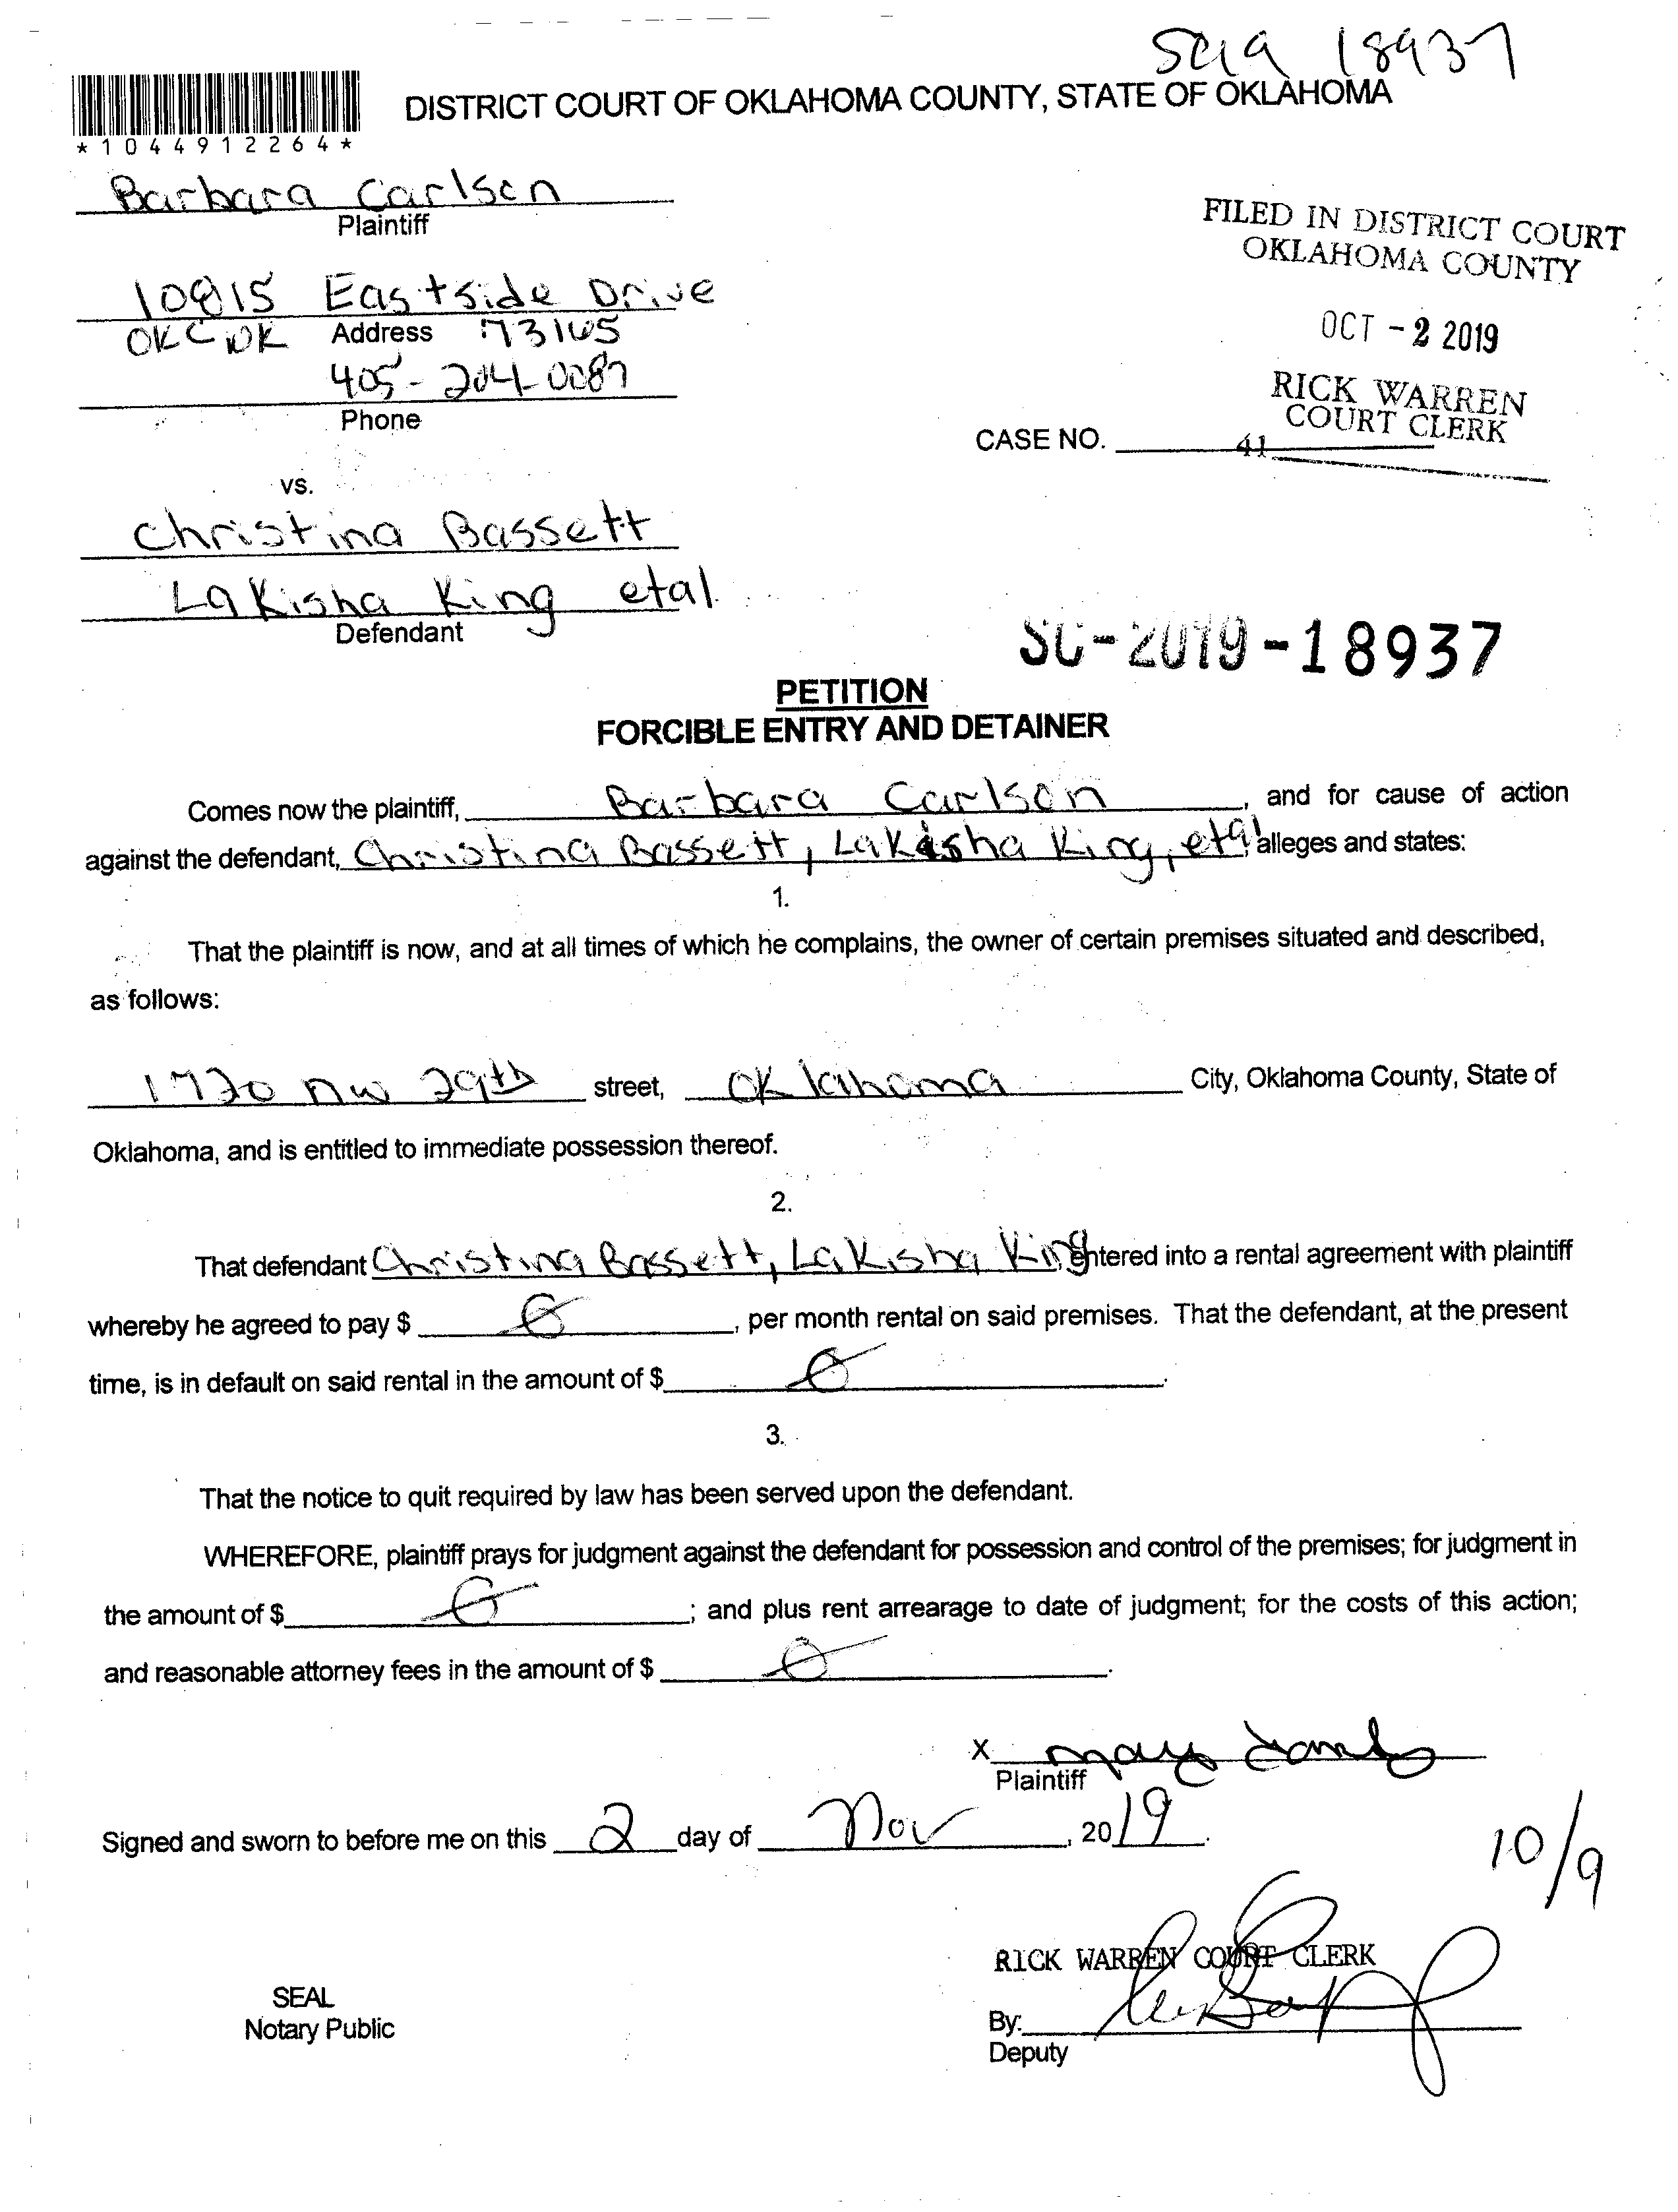 SC19 18937
DISTRICT COURT OF OKLAHOMA COUNTY, STATE OF OKLAHOMA
*1044912264*
Barbara Carlson
Plaintiff
10815 Eastside Drive
OKC OK Address 73165
405-204-0087
Phone
FILED IN DISTRICT COURT
OKLAHOMA COUNTY
OCT -2 2019
RICK WARREN
COURT CLERK
CASE NO. 41
vs.
Christina Bassett
LaKisha King etal
Defendant
SC-2019-18937
PETITION
FORCIBLE ENTRY AND DETAINER
Comes now the plaintiff, Barbara Carlson, and for cause of action
against the defendant, Christina Bassett, LaKisha King, etal alleges and states:
1.
That the plaintiff is now, and at all times of which he complains, the owner of certain premises situated and described,
as follows:
1720 NW 29th street, Oklahoma City, Oklahoma County, State of
Oklahoma, and is entitled to immediate possession thereof.
2.
That defendant Christina Bassett, LaKisha King entered into a rental agreement with plaintiff
whereby he agreed to pay $ 0, per month rental on said premises. That the defendant, at the present
time, is in default on said rental in the amount of $ 0.
3.
That the notice to quit required by law has been served upon the defendant.
WHEREFORE, plaintiff prays for judgment against the defendant for possession and control of the premises; for judgment in
the amount of $ 0; and plus rent arrearage to date of judgment; for the costs of this action;
and reasonable attorney fees in the amount of $ 0.
X
Plaintiff
Signed and sworn to before me on this 2 day of Nov, 2019.
10/9
RICK WARREN COURT CLERK
SEAL
Notary Public
By:
Deputy